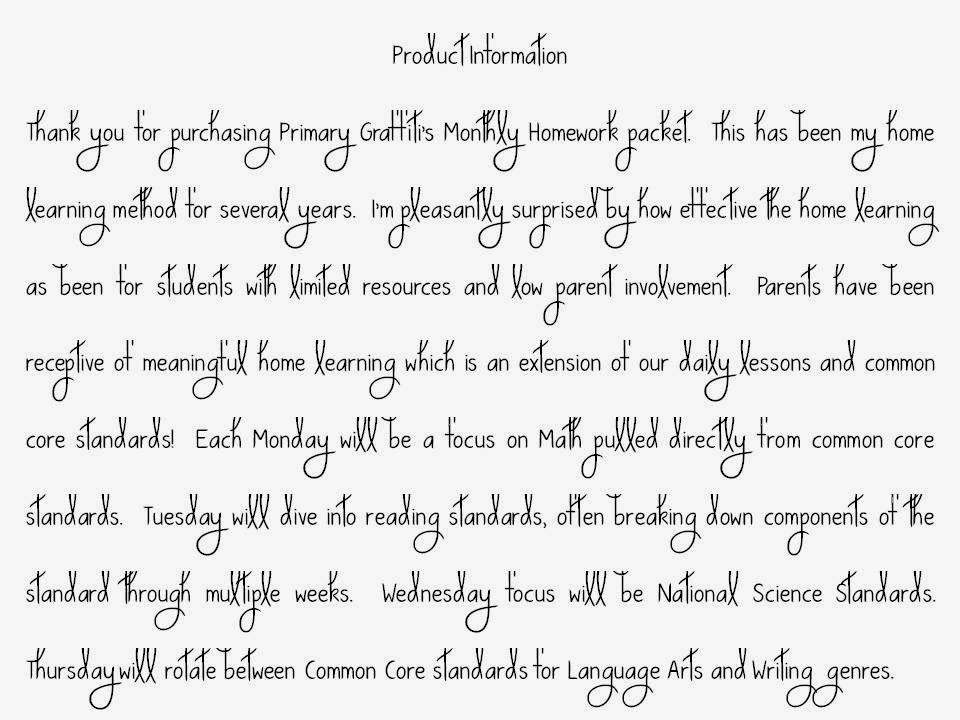 Product Information
Thank you for purchasing Primary Graffiti's Monthly Homework packet. This has been my home
learning method for several years. I'm pleasantly surprised by how effective the home learning
as been for students with limited resources and low parent involvement. Parents have been
receptive of meaningful home learning which is an extension of our daily lessons and common
core standards! Each Monday will be a focus on Math pulled directly from common core
standards. Tuesday will dive into reading standards, often breaking down components of the
standard through multiple weeks. Wednesday focus will be National Science Standards.
Thursday will rotate between Common Core standards for Language Arts and Writing genres.